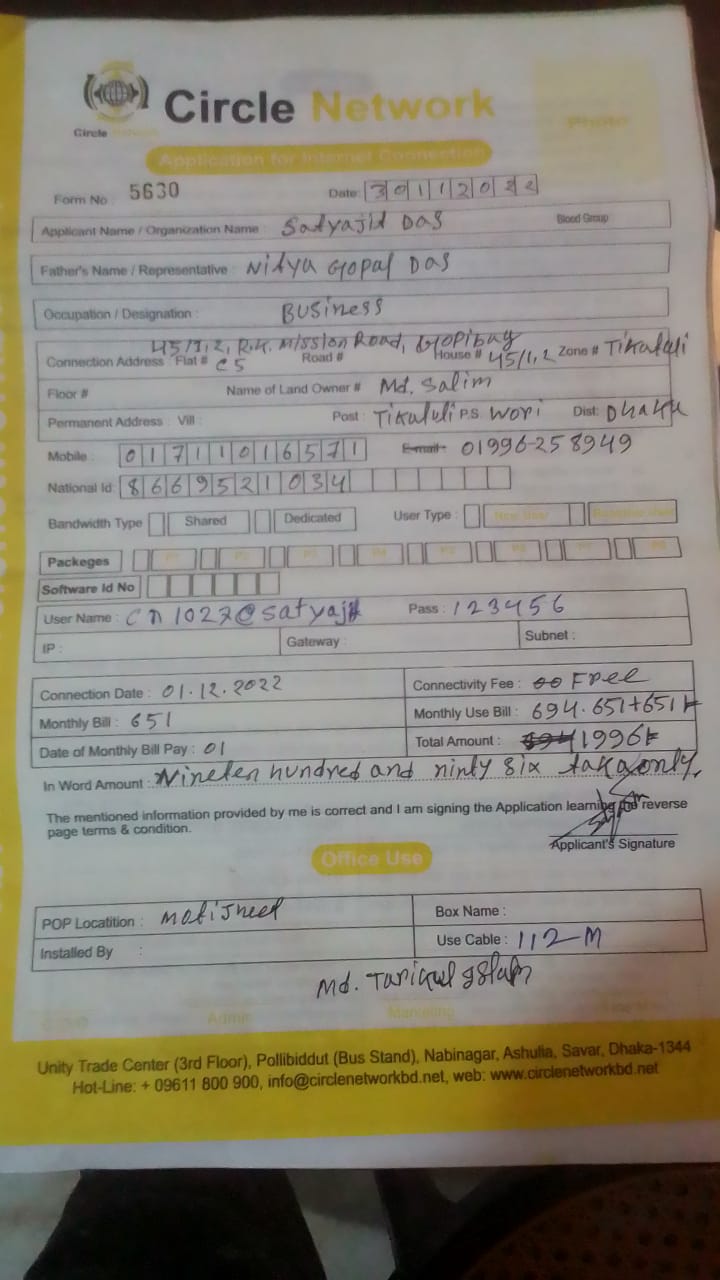 Circle Network
Circle Network
Photo
Application for Internet Connection
Form No : 5630 Date: 30112022
Applicant Name / Organization Name : Satyajit Das Blood Group
Father's Name / Representative : Nitya Gopal Das
Occupation / Designation : Business
45/1,2, R.K. Mission Road, Gopibag
Connection Address : Flat # C5 Road # House # 45/1,2 Zone # Tikatuli
Floor # Name of Land Owner # Md. Salim
Permanent Address : Vill : Post : Tikatuli P.S. Wori Dist: Dhaka
Mobile : 01711016571 E-mail 01996258949
National Id: 8669521034
Bandwidth Type Shared Dedicated User Type : New User
Packeges P1 P2 P3 P4 P5 P6 P7 P8
Software Id No
User Name : @satyajit Pass : 123456
IP : Gateway : Subnet :
Connection Date : 01.12.2022 Connectivity Fee : Free
Monthly Bill : 651 Monthly Use Bill : 694.651+651
Date of Monthly Bill Pay : 01 Total Amount : 1996
In Word Amount : Nineten hundred and ninty six taka only.
The mentioned information provided by me is correct and I am signing the Application learning the reverse
page terms & condition.
Applicant's Signature
Office Use
POP Locatition : Motijheel Box Name :
Installed By : Use Cable : 112-M
Md. Tarikul Islam
Admin Marketing
Unity Trade Center (3rd Floor), Pollibiddut (Bus Stand), Nabinagar, Ashulia, Savar, Dhaka-1344
Hot-Line: + 09611 800 900, info@circlenetworkbd.net, web: www.circlenetworkbd.net